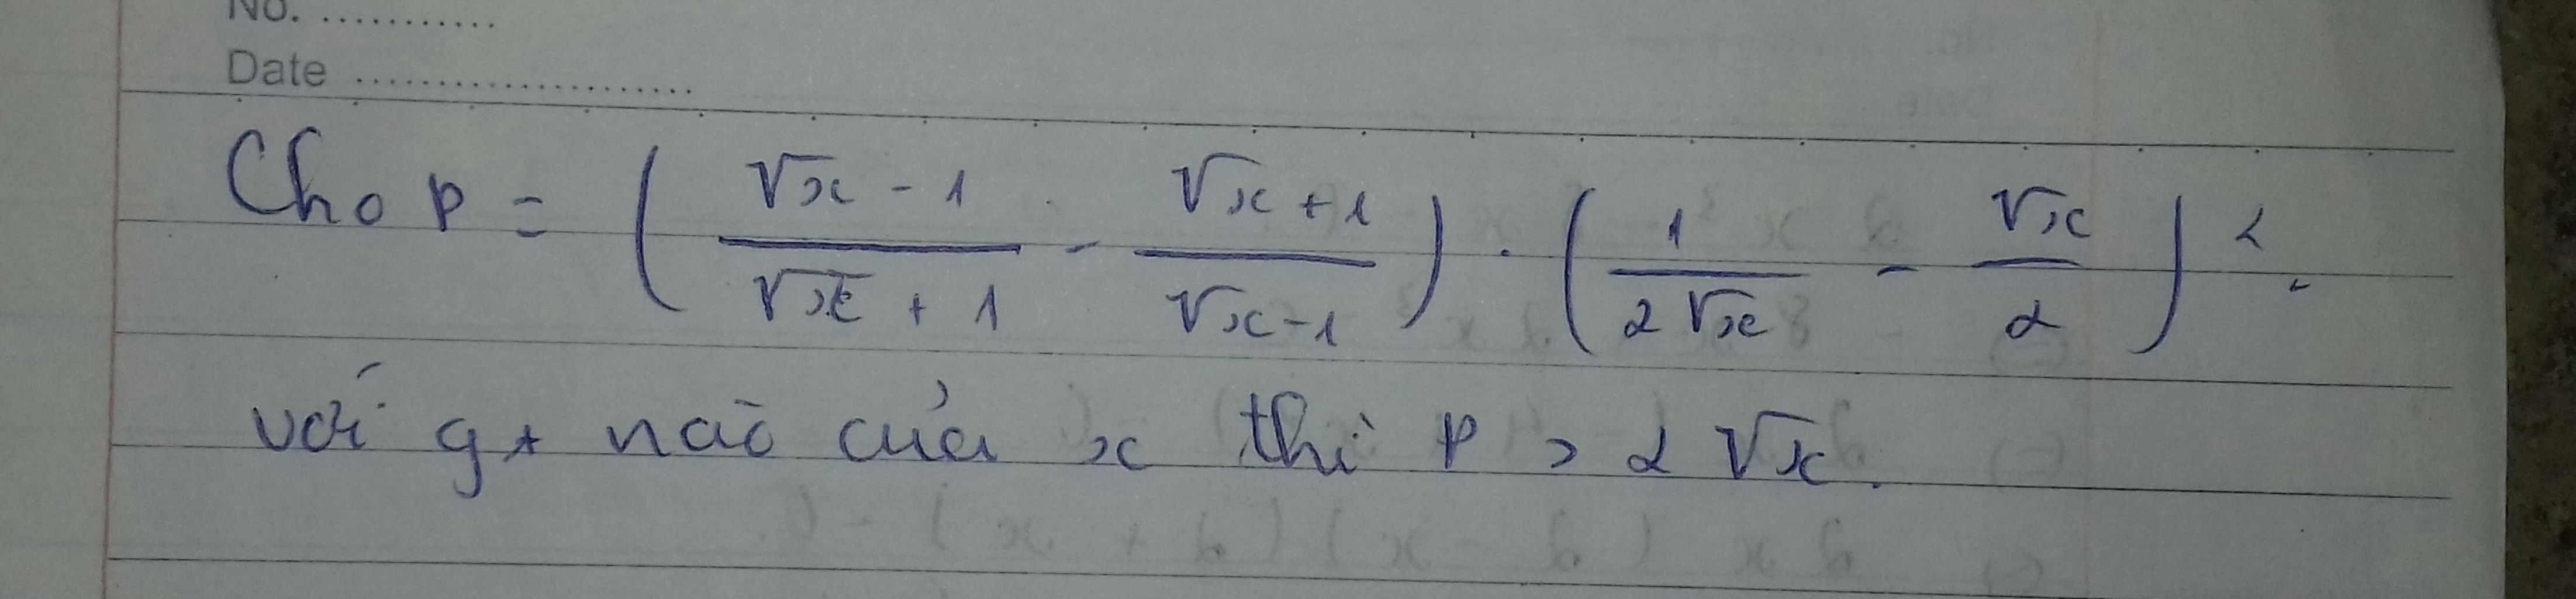 No. ...........
Date ......................
Cho p = ( (√x - 1)/(√x + 1) - (√x + 1)/(√x - 1) ) . ( 1/(2√x) - √x/2 )².
với gt nào của x thì p > 2√x.